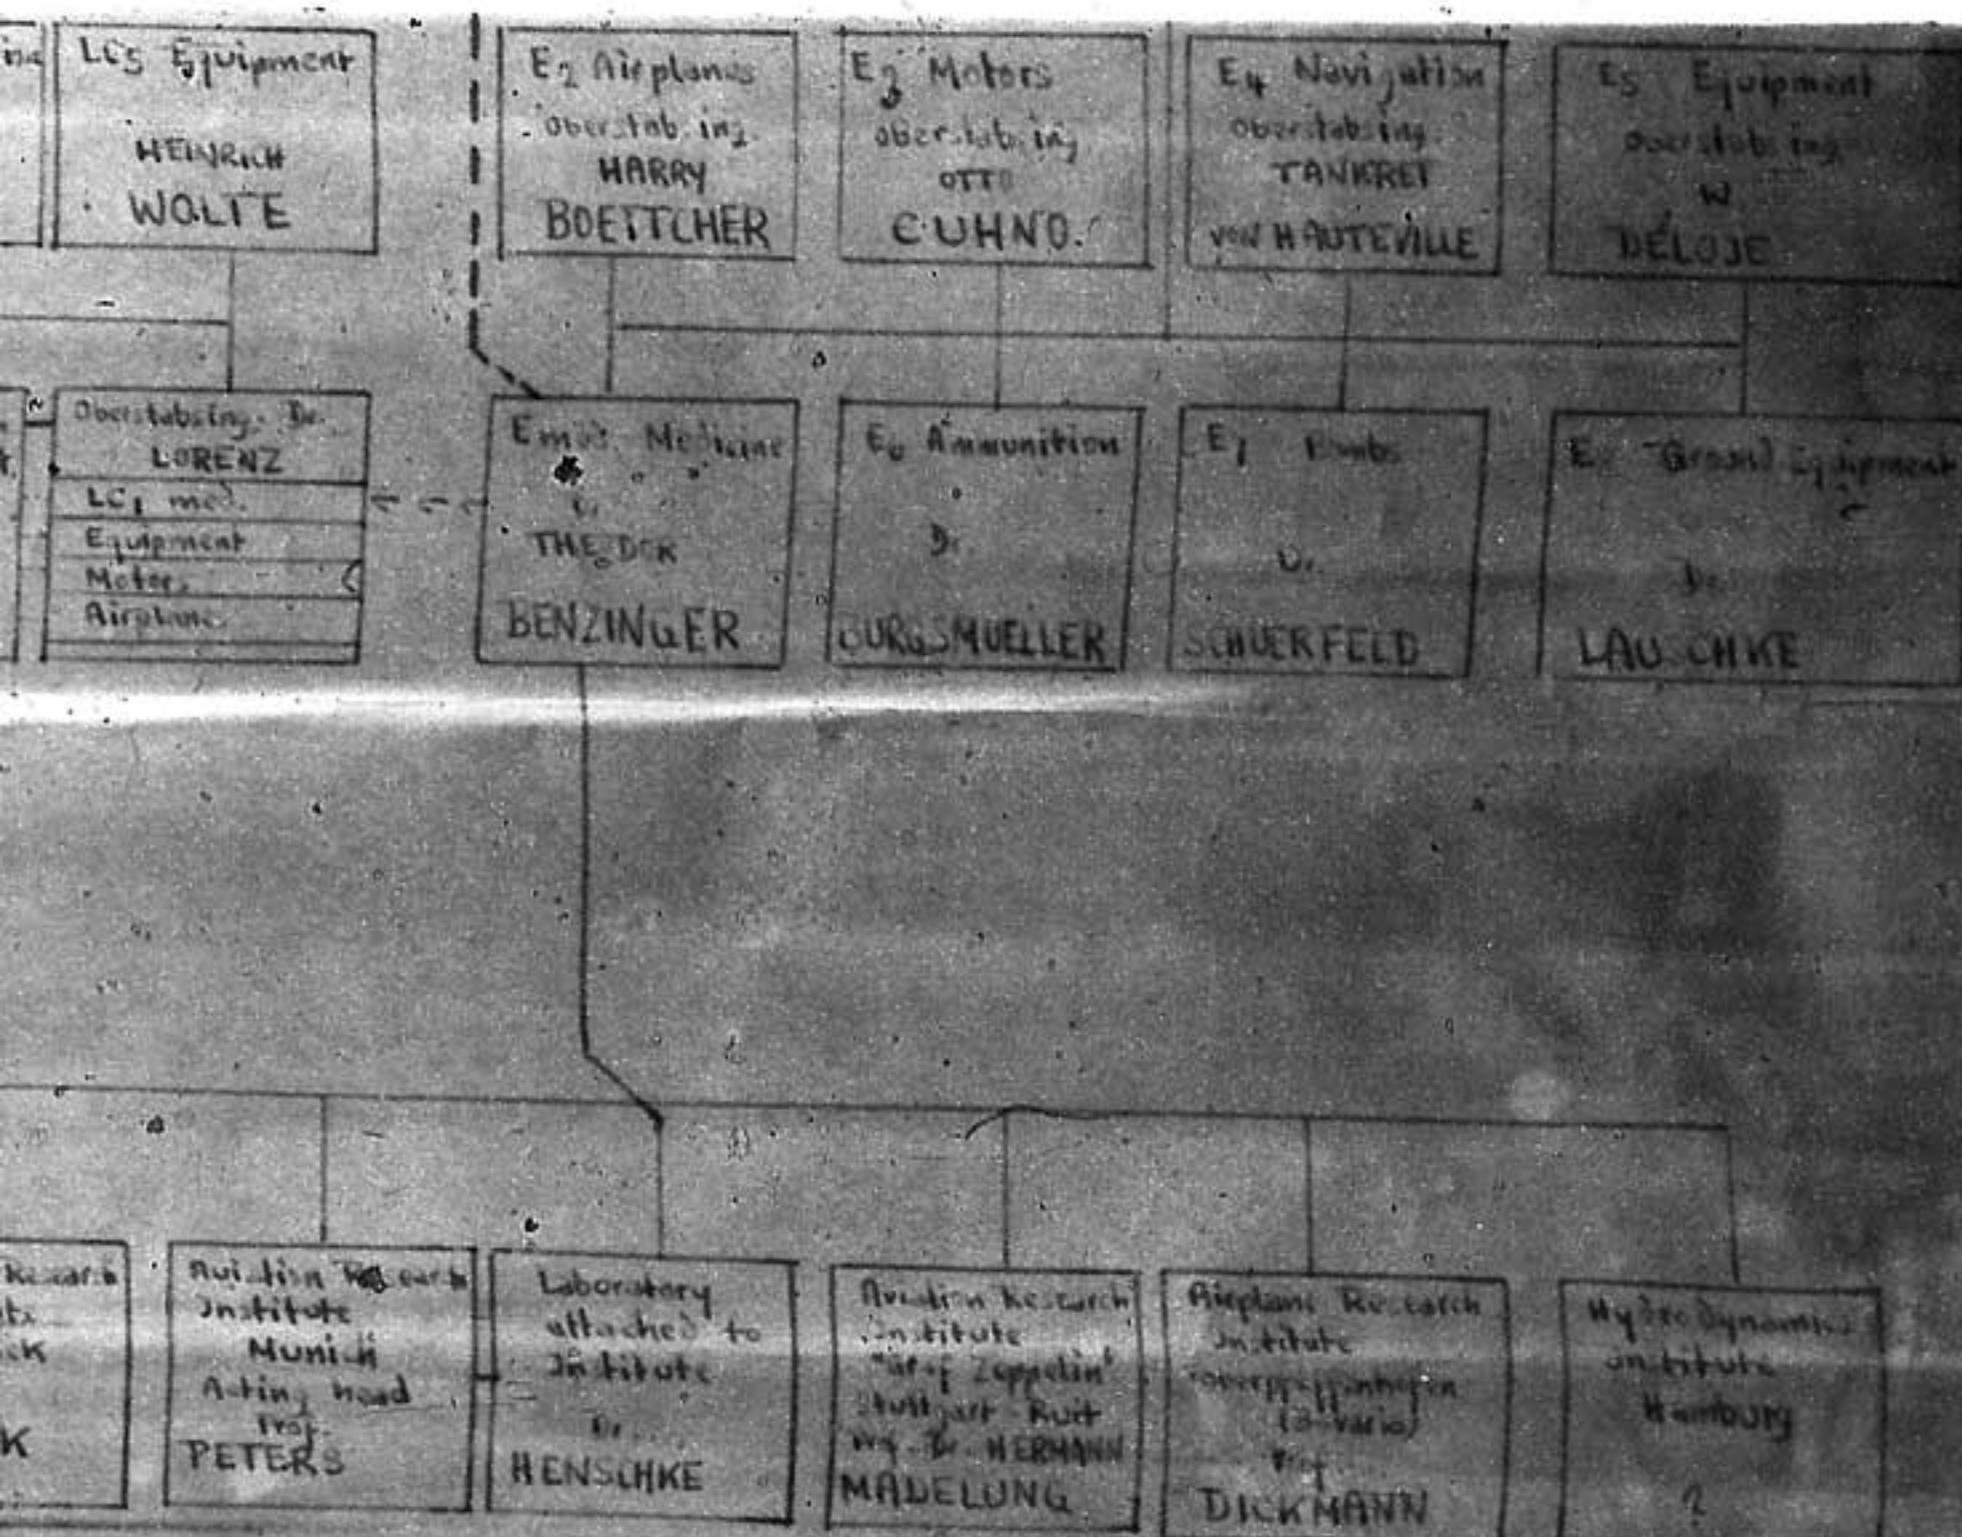 LC5 Equipment
HEINRICH
WOLTE
E2 Airplanes
Oberstab. ing.
HARRY
BOETTCHER
E3 Motors
Oberstab. ing
OTTO
CUHNO.
E4 Navigation
Oberstab. ing.
TANKRET
von HAUTEVILLE
E5 Equipment
Oberstab. ing.
W
DELOJE
Oberstabsing. Dr.
LORENZ
LC1 med.
Equipment
Motors
Airplane
Medicine
BENZINGER
E6 Ammunition
Dr.
BURGSMUELLER
E7 Bombs
Dr.
SCHUERFELD
Ground Equipment
Dr.
LAUSCHKE
Research
Aviation Research
Institute
Munich
Acting head
Prof.
PETERS
Laboratory
attached to
Institute
Dr.
HENSCHKE
Aviation Research
Institute
"Graf Zeppelin"
Stuttgart Ruit
Dr. HERMANN
MADELUNG
Airplane Research
Institute
Prof.
DICKMANN
Hydrodynamics
Institute
Hamburg
?